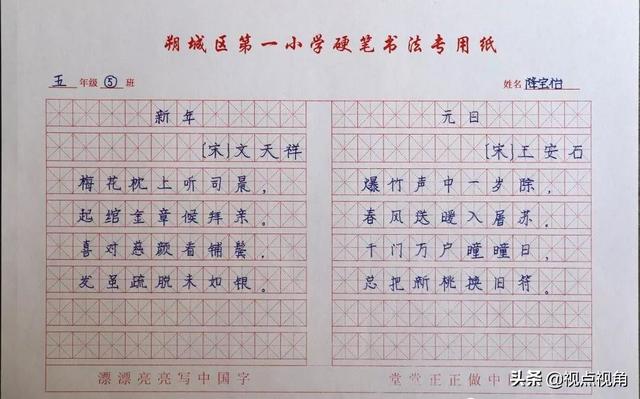 朔城区第一小学硬笔书法专用纸
五年级⑤班
姓名 隆宝怡
新年
[宋]文天祥
梅花枕上听司晨，
起绾金章候拜亲。
喜对慈颜看铺鬓，
发虽疏脱未如银。
元日
[宋]王安石
爆竹声中一岁除，
春风送暖入屠苏。
千门万户曈曈日，
总把新桃换旧符。
漂漂亮亮写中国字
堂堂正正做中
头条 @视点视角